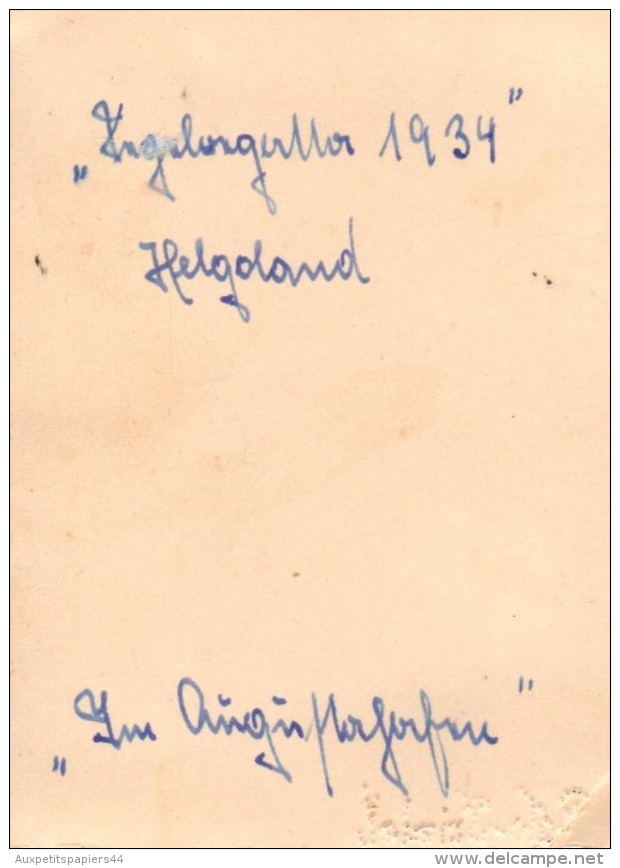 „Segelregatta 1934"
Helgoland
„Im Augustahafen"
Auxpetitspapiers44
www.delcampe.net